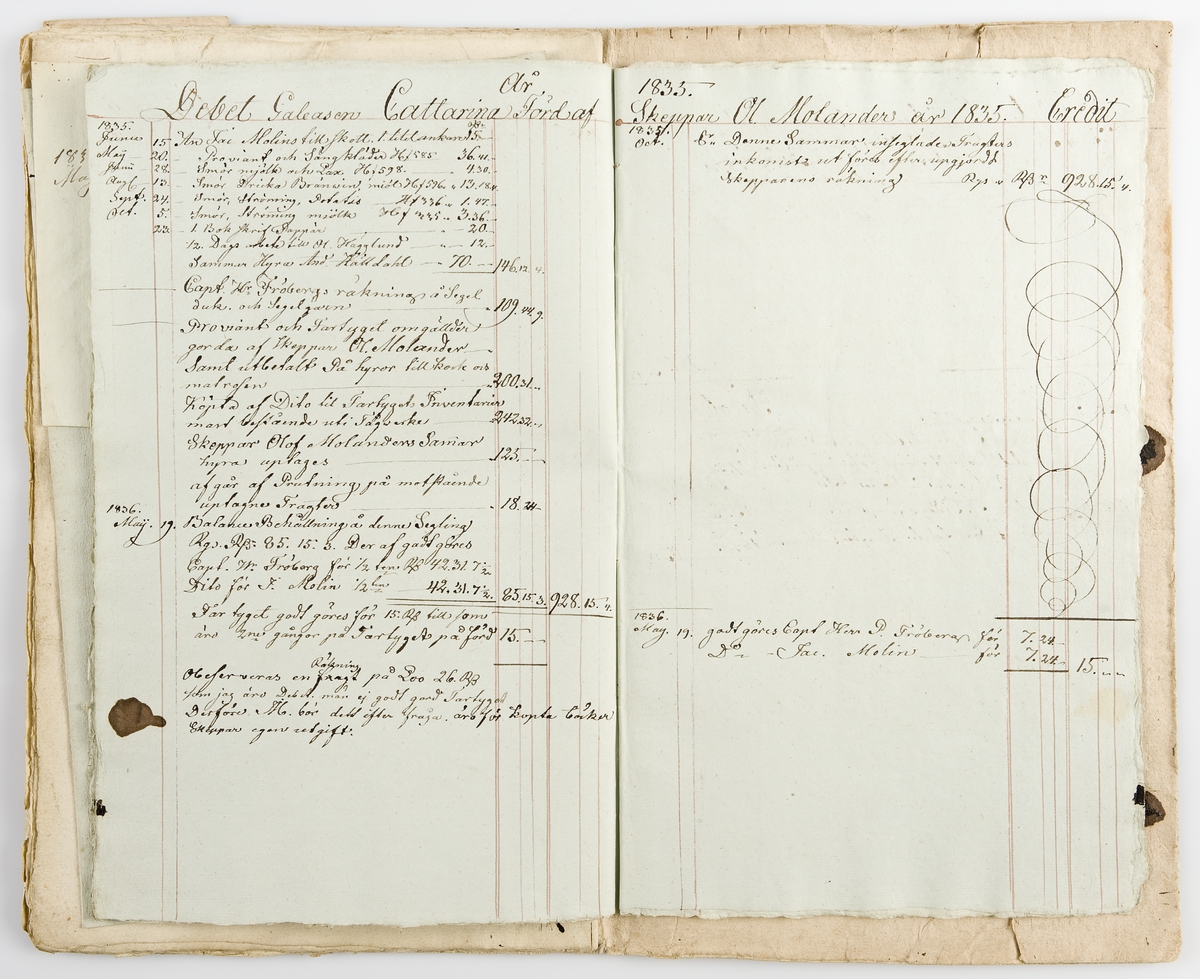 År
Debet Galeasen Cattarina Förd af
1835.
Junii 15 An Jac Molins till skott. 1 lild ankare 15
Maj 20. Proviant och Sängkläder Hf 585 36.41.
Junii 28. Smör mjölk och Lax. Hf 598. 4.30.
Aug 13. Smör Dricka Bränwin, miöl Hf 596 13.18.4.
Sept. 24. Smör, Strömning, Potates Hf 336 1.47.
Oct. 5. Smör, Strömning mjölk Hf 335 3.36.
23. 1. Bok skrif Pappär 20.
12. Dags arbete till Ol. Hägglund 12.
Sammar Hyra And. Källdahl 70. 146.12.4.
Capt. Hr Fröbergs räkning å Segel
duk. och Segelgarn 109.44.9.
Proviant och Fartyget omgällder
gorda af skeppar Ol. Molander
Samt utbetalt På hyror till kock och
matrosen 200.31.
Köpta af Dito til Fartygets Inventarier
mart bestående uti Tågverke 242.32.
Skeppar Olof Molanders Samar
hyra uptages 125.
afgår af Prutning på motstående
uptagne Fragter 18.24
1836.
Maij. 19. Balance Behållning å denne Segling
Rgs. Rß 85. 15. 3. Der af godt göres
Capt. Hr Fröberg för 1/2 ten Rß 42.31.7 1/2
Dito för J. Molin 1/2 ten 42.31.7 1/2. 85.15.3. 928.15.4.
Fartyget godt göres för 15. Rß till som
äro 2ne gånger på Fartyget på förd 15.
Observeras en Räkning fragt på Loo 26. Rß
som jag äro Debet. man ej godt gord Fartyget
Derföre M. bör dett efter fråga. äro för kopta böcker
Skeppar egen utgift.
1835.
Skeppar Ol Molander år 1835. Credit
1835.
Oct. Er Denne Sammar inseglade Fragters
inkomst ut föres efter upgjord
Skepparens räkning Rgs Rß 928.15.4.
1836.
May. 19. godt göres Capt Herr P. Fröberg för 7.24
Do Jac. Molin för 7.24 15.